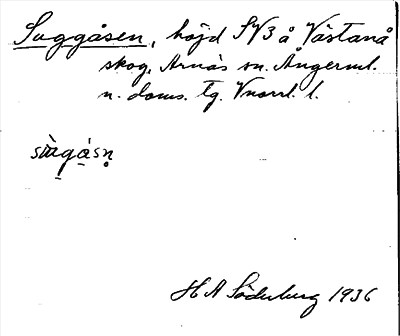 Saggåsen, höjd SV3 å Västanå
skog, Arnäs sn. Ångerml.
n. doms. tg. Vnorrl. l.
sàgåsn̥
H A Söderberg 1936